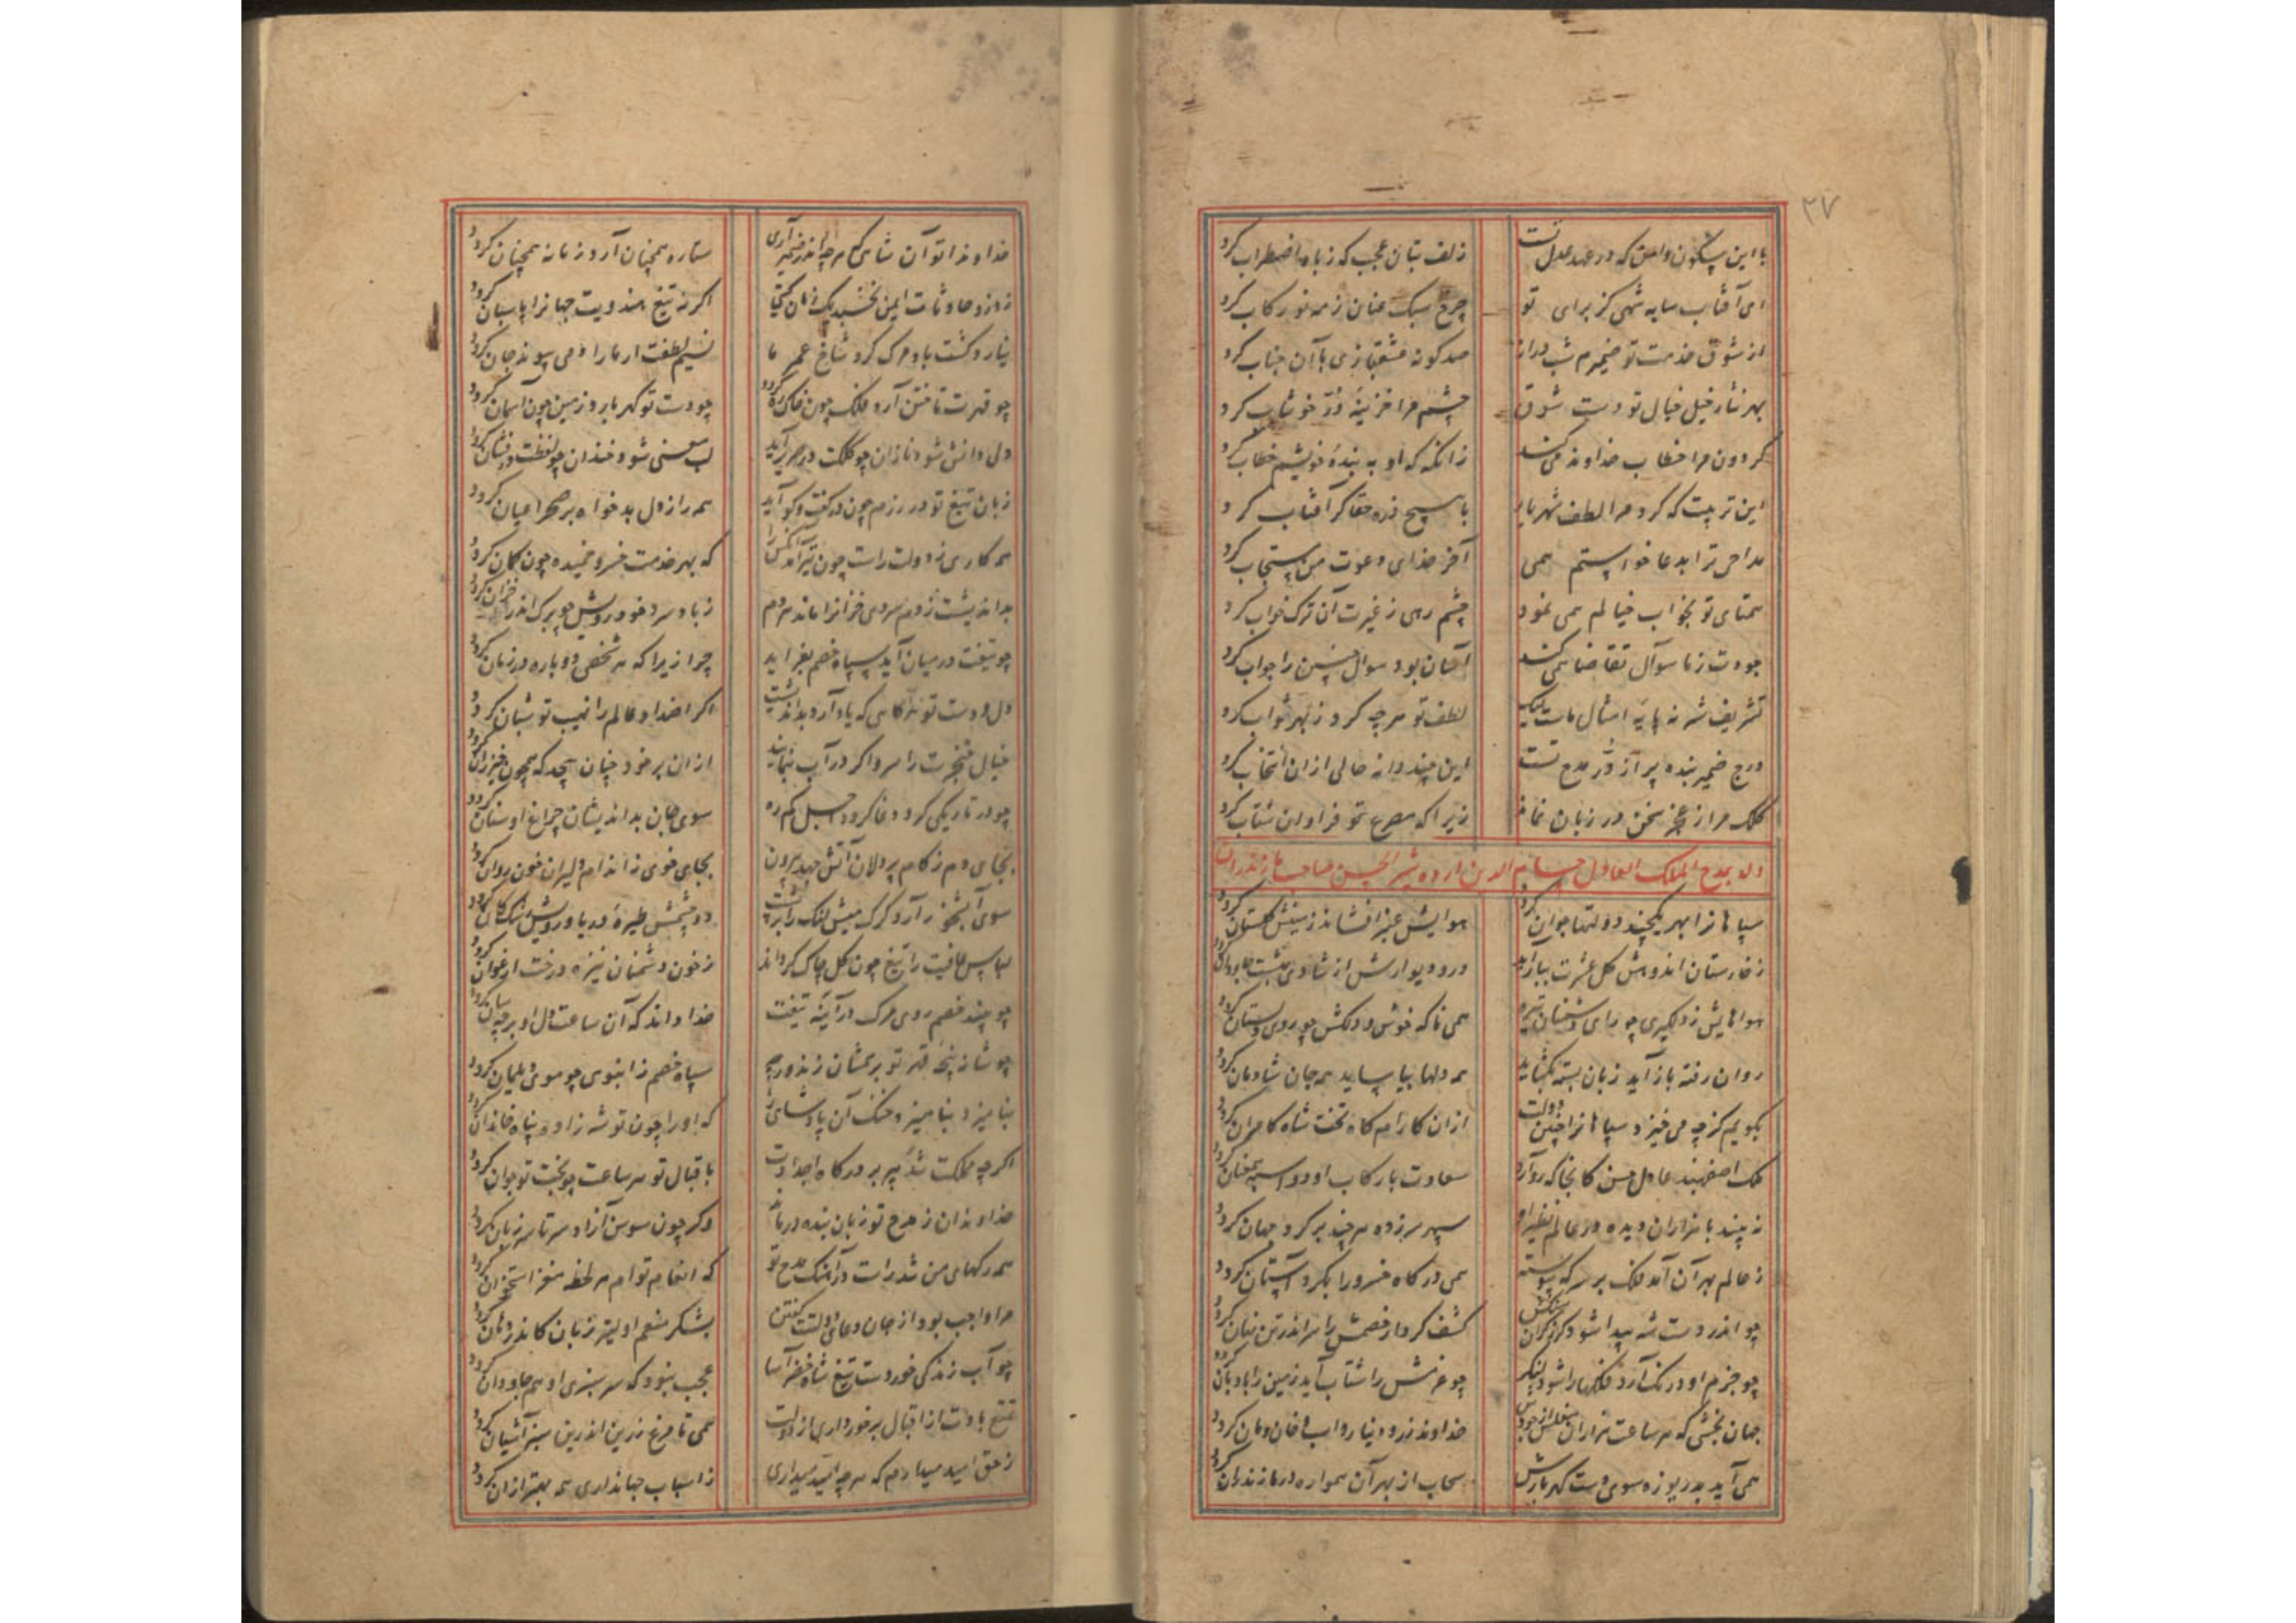 ۲۷
با این سکون و امن که در عهد عدل تست زلف بتان عجب که ز باد اضطراب کرد
ای آفتاب سایه شهی کز برای تو چرخ سبک عنان ز مه نو رکاب کرد
از شوق خدمت تو ضمیرم شب دراز صد گونه عشقبازی با آن جناب کرد
بهر نثار خیل خیال تو دست شوق چشم مرا خزینهٔ در خوشاب کرد
گردون مرا خطاب خداوند می کند زانگه که او به بندهٔ خویشم خطاب کرد
این تربیت که کرد مرا لطف شهریار با هیچ ذره حقا گر آفتاب کرد
مداحی ترا بدعا خواستم همی آخر خدای دعوت من مستجاب کرد
همتای تو بخواب خیالم همی نمود چشم رهی ز غیرت آن ترک خواب کرد
جودت ز ما سوآل تقاضا همی کند آسان بود سوال چنین را جواب کرد
تشریف شه نه پایهٔ امثال ماست لیک لطف تو هرچه کرد ز بهر ثواب کرد
درج ضمیر بنده پر از در مدح تست این چند دانه حالی ازان انتخاب کرد
کلک مرا ز عجز سخن در زبان فتاد زیرا که مدح تو فراوان شتاب کرد
وله بمدح الملک العادل حسام الدین اردشیر الحسن صاحب مازندران
سپاهانرا بهر یکچند دولتها جوان گردد هوایش عنبر افشاند زمینش گلستان گردد
ز خارستان اندوهش گل عشرت ببار آید در و دیوارش از شادی بهشت جاودان گردد
هواهایش ز دلگیری چو رای دشمنان تیره همی ناگه خوش و دلکش چو روی دلستان گردد
روان رفته باز آید زبان بسته بگشاید همه دلها بیاساید همه جان شادمان گردد
بگویم کز چه می خیزد سپاهانرا چنین دولت ازان کارامگاه تخت شاه کامران گردد
ملک اصفهبد عادل حسن کانجا که رو آرد سعادت با رکاب او دو اسپه همعنان گردد
نه بیند با هزاران دیده در عالم نظیر او سپهر سرزده هرچند بر گرد جهان گردد
ز عالم بهر آن آمد فلک بر سر که پیوسته همی درگاه خسرو را بگرد آستان گردد
چو اندر دست شه پیدا شود گرز گران سنگش کشف کردار خصمش را سر اندر تن نهان گردد
چو حزم او درنگ آرد فلکها را شود لنگر چو عزمش را شتاب آید زمین را بادبان گردد
جهان بخشی که هر ساعت هزاران مفلس از جودش خداوند زر و دینار و اسب و خان و مان گردد
همی آید بدریوزه سوی دست گهربارش سحاب از بهر آن همواره در مازندران گردد
خداوندا تو آن شاهی که هرچ اندر ضمیر آری ستاره همچنان آرد زمانه همچنان گردد
ز دزد حادثات ایمن نخسبد یک زمان گیتی اگر نه تیغ هندویت جهانرا پاسبان گردد
نیارد گشت باد مرگ گرد شاخ عمر ما نسیم لطفت ار ما را دمی پیوند جان گردد
چو قهرت تاختن آرد فلک چون خاک ره گردد چو دست تو گهر بارد زمین چون آسمان گردد
دل دانش شود نازان چو کلکت در صریر آید لب معنی شود خندان چو لفظت درفشان گردد
زبان تیغ تو در رزم چون در گفت و گو آید همه راز دل بدخواه بر صحرا عیان گردد
همه کاری ز دولت راست چون تیر آمد آنکس را که بهر خدمت خسرو خمیده چون کمان گردد
بداندیشت ز دم سردی خزانرا ماند هر دم ز باد سرد خود رویش چو برگ اندر خزان گردد
چو تیغت در میان آید سپاه خصم بفزاید چرا زیرا که هر شخصی دو باره در زمان گردد
دل و دست تو هرگاهی که یاد آرد بداندیشت اگر اضداد عالم را نهیب تو شبان گردد
خیال خنجرت را سر و اگر در آب بنماید ازان بر خود چنان پیچد که همچون خیزران گردد
چو در تاریکی گرد وغا گردد اجل گم ره سوی جان بداندیشان چراغ او سنان گردد
بجای دم ز کام پردلان آتش جهد بیرون بجای خوی ز اندام دلیران خون روان گردد
سوی آبشخور آرد گرگ میش لنگ را بر پشت دو چشمش طیرهٔ دریا و رویش رشک کان گردد
لباس عافیت را تیغ چون گل چاک گرداند ز خون دشمنان نیزه درخت ارغوان گردد
چو بیند خصم روی مرگ در آینهٔ تیغت خدا داند که آن ساعت دل او بر چه سان گردد
چو شانه پنجهٔ قهر تو بر همشان زند در چه سپاه خصم ز انبوهی چو موی دیلمان گردد
بنامیزد بنامیزد خنک آن پادشاهی را که او را چون تو شه زاده پناه خاندان گردد
اگرچه مملکت شد پیر بر درگاه اجدادت باقبال تو هر ساعت چو بخت تو جوان گردد
خداوندا ز مدح تو زبان بنده در ماند وگر چون سوسن آزاد سرتاسر زبان گردد
همه رگهای من شد راست در آهنگ مدح تو که انعام توام هر لحظه مغز استخوان گردد
مرا واجب بود از جان دعای دولتت گفتن بشکر منعم اولیتر زبان کاندر دهان گردد
چو آب زندگی خوردست تیغ شاه خضر آسا عجب نبود که سرسبزی او هم جاودان گردد
تمتع بادت از اقبال برخورداری از دولت همی تا مرغ زرین اندرین سبز آشیان گردد
ز حق امید میدارم که هرچ امید میداری ز اسباب جهانداری همه بهتر ازان گردد